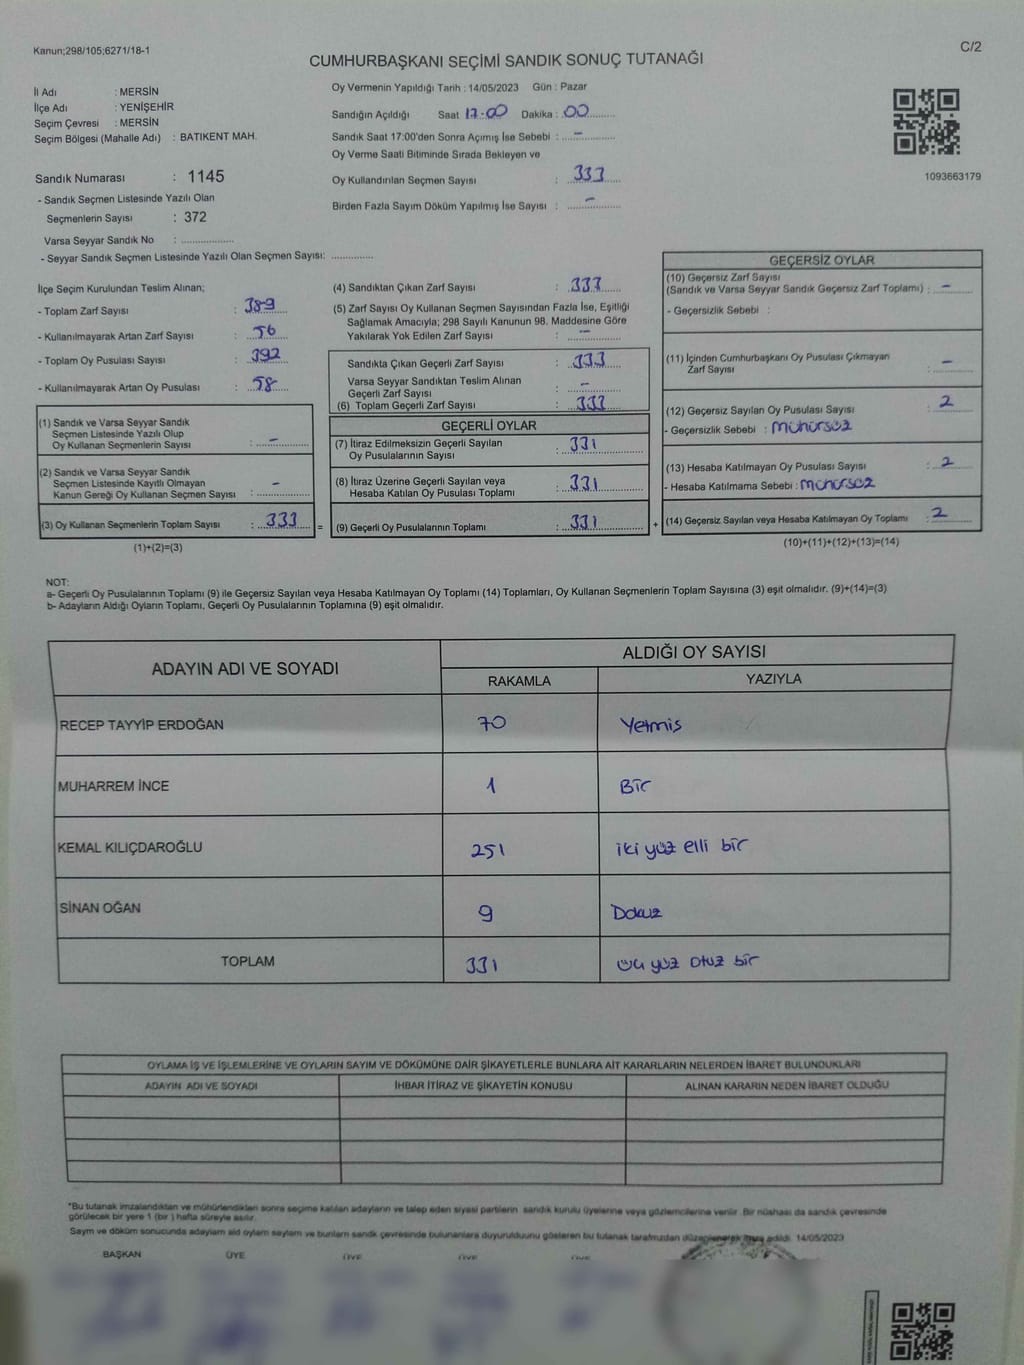 Kanun;298/105;6271/18-1
C/2
CUMHURBAŞKANI SEÇİMİ SANDIK SONUÇ TUTANAĞI
İl Adı : MERSİN
İlçe Adı : YENİŞEHİR
Seçim Çevresi : MERSİN
Seçim Bölgesi (Mahalle Adı) : BATIKENT MAH.
Sandık Numarası : 1145
- Sandık Seçmen Listesinde Yazılı Olan
Seçmenlerin Sayısı : 372
Varsa Seyyar Sandık No : ................
- Seyyar Sandık Seçmen Listesinde Yazılı Olan Seçmen Sayısı: .............
Oy Vermenin Yapıldığı Tarih : 14/05/2023 Gün : Pazar
Sandığın Açıldığı Saat 17.00 Dakika : 00
Sandık Saat 17:00'den Sonra Açımış İse Sebebi : -
Oy Verme Saati Bitiminde Sırada Bekleyen ve
Oy Kullandırılan Seçmen Sayısı : 333
Birden Fazla Sayım Döküm Yapılmış İse Sayısı : -
1093663179
İlçe Seçim Kurulundan Teslim Alınan;
- Toplam Zarf Sayısı : 389
- Kullanılmayarak Artan Zarf Sayısı : 56
- Toplam Oy Pusulası Sayısı : 392
- Kullanılmayarak Artan Oy Pusulası : 58
(1) Sandık ve Varsa Seyyar Sandık
Seçmen Listesinde Yazılı Olup
Oy Kullanan Seçmenlerin Sayısı : -
(2) Sandık ve Varsa Seyyar Sandık
Seçmen Listesinde Kayıtlı Olmayan
Kanun Gereği Oy Kullanan Seçmen Sayısı : -
(3) Oy Kullanan Seçmenlerin Toplam Sayısı : 333 =
(1)+(2)=(3)
(4) Sandıktan Çıkan Zarf Sayısı : 333
(5) Zarf Sayısı Oy Kullanan Seçmen Sayısından Fazla İse, Eşitliği
Sağlamak Amacıyla; 298 Sayılı Kanunun 98. Maddesine Göre
Yakılarak Yok Edilen Zarf Sayısı : -
Sandıkta Çıkan Geçerli Zarf Sayısı : 333
Varsa Seyyar Sandıktan Teslim Alınan
Geçerli Zarf Sayısı : -
(6) Toplam Geçerli Zarf Sayısı : 333
GEÇERLİ OYLAR
(7) İtiraz Edilmeksizin Geçerli Sayılan
Oy Pusulalarının Sayısı : 331
(8) İtiraz Üzerine Geçerli Sayılan veya
Hesaba Katılan Oy Pusulası Toplamı : 331
(9) Geçerli Oy Pusulalarının Toplamı : 331 +
GEÇERSİZ OYLAR
(10) Geçersiz Zarf Sayısı
(Sandık ve Varsa Seyyar Sandık Geçersiz Zarf Toplamı) : -
- Geçersizlik Sebebi :
(11) İçinden Cumhurbaşkanı Oy Pusulası Çıkmayan
Zarf Sayısı : -
(12) Geçersiz Sayılan Oy Pusulası Sayısı : 2
- Geçersizlik Sebebi : mühürsüz
(13) Hesaba Katılmayan Oy Pusulası Sayısı : 2
- Hesaba Katılmama Sebebi : mühürsüz
(14) Geçersiz Sayılan veya Hesaba Katılmayan Oy Toplamı : 2
(10)+(11)+(12)+(13)=(14)
NOT:
a- Geçerli Oy Pusulalarının Toplamı (9) ile Geçersiz Sayılan veya Hesaba Katılmayan Oy Toplamı (14) Toplamları, Oy Kullanan Seçmenlerin Toplam Sayısına (3) eşit olmalıdır. (9)+(14)=(3)
b- Adayların Aldığı Oyların Toplamı, Geçerli Oy Pusulalarının Toplamına (9) eşit olmalıdır.
ADAYIN ADI VE SOYADI
ALDIĞI OY SAYISI
RAKAMLA YAZIYLA
RECEP TAYYİP ERDOĞAN 70 Yetmiş
MUHARREM İNCE 1 Bir
KEMAL KILIÇDAROĞLU 251 iki yüz elli bir
SİNAN OĞAN 9 Dokuz
TOPLAM 331 üç yüz otuz bir
OYLAMA İŞ VE İŞLEMLERİNE VE OYLARIN SAYIM VE DÖKÜMÜNE DAİR ŞİKAYETLERLE BUNLARA AİT KARARLARIN NELERDEN İBARET BULUNDUKLARI
ADAYIN ADI VE SOYADI İHBAR İTİRAZ VE ŞİKAYETİN KONUSU ALINAN KARARIN NEDEN İBARET OLDUĞU
*Bu tutanak imzalandıktan ve mühürlendikten sonra seçime katılan adayların ve talep eden siyasi partilerin sandık kurulu üyelerine veya gözlemcilerine verilir. Bir nüshası da sandık çevresinde
görülecek bir yere 1 (bir) hafta süreyle asılır.
Sayım ve döküm sonucunda adayların oyların sayılarını ve bunların sandık çevresinde bulunanlara duyurulduunu gösteren bu tutanak tarafımızdan düzenlenerek imza edildi. 14/05/2023
BAŞKAN ÜYE ÜYE ÜYE ÜYE